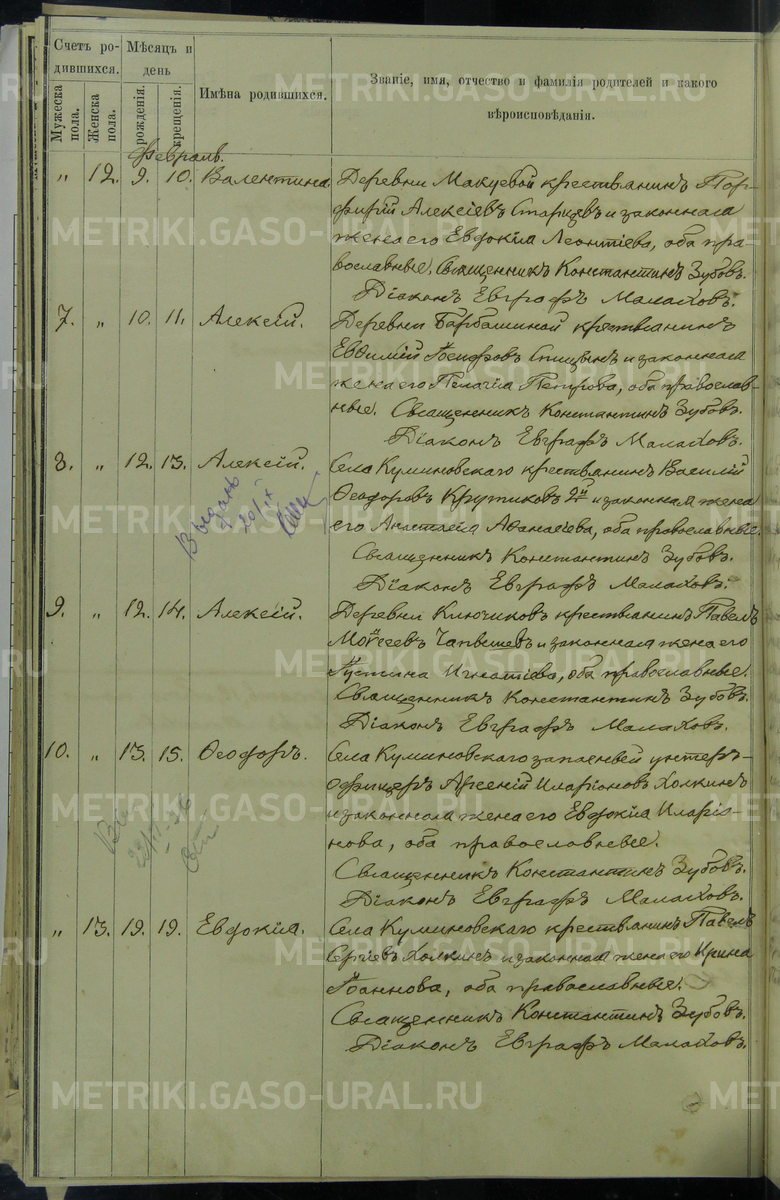 Счетъ ро-
дившихся.
Мѣсяцъ и
день
Имѣна родившихся.
Званіе, имя, отчество и фамилія родителей и какого
вѣроисповѣданія.
Мужеска
пола.
Женска
пола.
рожденія.
крещенія.
Февраль.
„ 12. 9. 10. Валентина. Деревни Макуевой крестьянинъ Пор-
фирій Алексіевъ Старцевъ и законная
жена его Евдокія Леонтіева, оба пра-
вославные. Священникъ Константинъ Зубовъ.
Діаконъ Евграфъ Малаховъ.
7. „ 10. 11. Алексій. Деревни Барбашиной крестьянинъ
Евдимій Іосифовъ Спицынъ и законная
жена его Пелагія Петрова, оба православ-
ные. Священникъ Константинъ Зубовъ.
Діаконъ Евграфъ Малаховъ.
8. „ 12. 13. Алексій. Села Куминовскаго крестьянинъ Василій
Ѳеодоровъ Крутиковъ 2й и законная жена
его Анастасія Аѳанасіева, оба православные.
Выданъ
20/I
Священникъ Константинъ Зубовъ.
Діаконъ Евграфъ Малаховъ.
9. „ 12. 14. Алексій. Деревни Ключиковъ крестьянинъ Павелъ
Моѵсеевъ и законная жена его
Іустина Игнатіева, оба православные.
Священникъ Константинъ Зубовъ.
Діаконъ Евграфъ Малаховъ.
10. „ 13. 15. Ѳеодоръ. Села Куминовскаго запасный унтеръ-
офицеръ Арсеній Иларіоновъ Холкинъ
и законная жена его Евдокія Иларіо-
нова, оба православные.
Священникъ Константинъ Зубовъ.
Діаконъ Евграфъ Малаховъ.
„ 13. 19. 19. Евдокія. Села Куминовскаго крестьянинъ Павелъ
Сергіевъ Холкинъ и законная жена его Ирина
Іоаннова, оба православные.
Священникъ Константинъ Зубовъ.
Діаконъ Евграфъ Малаховъ.
METRIKI.GASO-URAL.RU